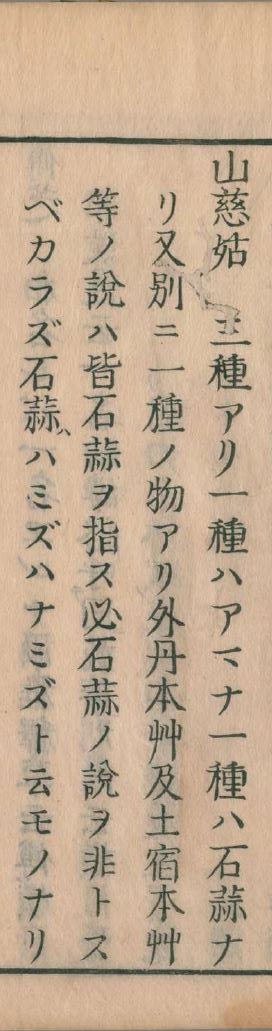 山慈姑 三種アリ一種ハアマナ一種ハ石蒜ナ
リ又別ニ一種ノ物アリ外丹本艸及土宿本艸
等ノ說ハ皆石蒜ヲ指ス必石蒜ノ說ヲ非トス
ベカラズ石蒜ハミズハナミズト云モノナリ